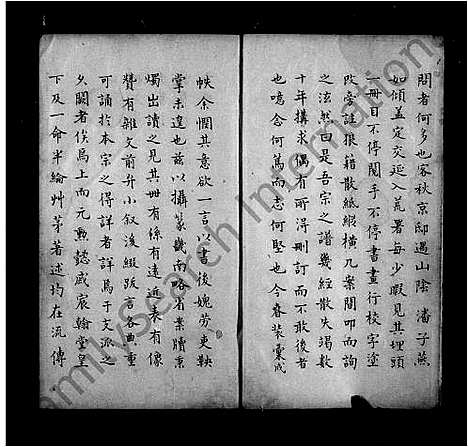 問者何多也家秋京邸遇山陰潘子燕
如傾蓋定交延入荒署每少暇見其埋頭
一冊目不停閱手不停書畫行校字塗
改旁註狼籍散紙縱橫几案間叩而詢
之泫然曰是吾宗之譜幾經散失竭數
十年搆求偶有所得刪訂而不敢後者
也噫念何篤而志何堅也今春裝稾成
帙余憫其意欲一言以書後婉勞吏鞅
掌未遑也茲以攝篆畿南略省案牘熏
燭出讀之見其冊有係有遠近表有像
贊有雜文前升小叙後綴跋言各典重
可誦於本宗之得詳者詳焉于文派之
久闕者俟焉上而元勲懿戚宸翰堂皇
下及一命半綸艸茅著述均在流傳
FamilySearch International